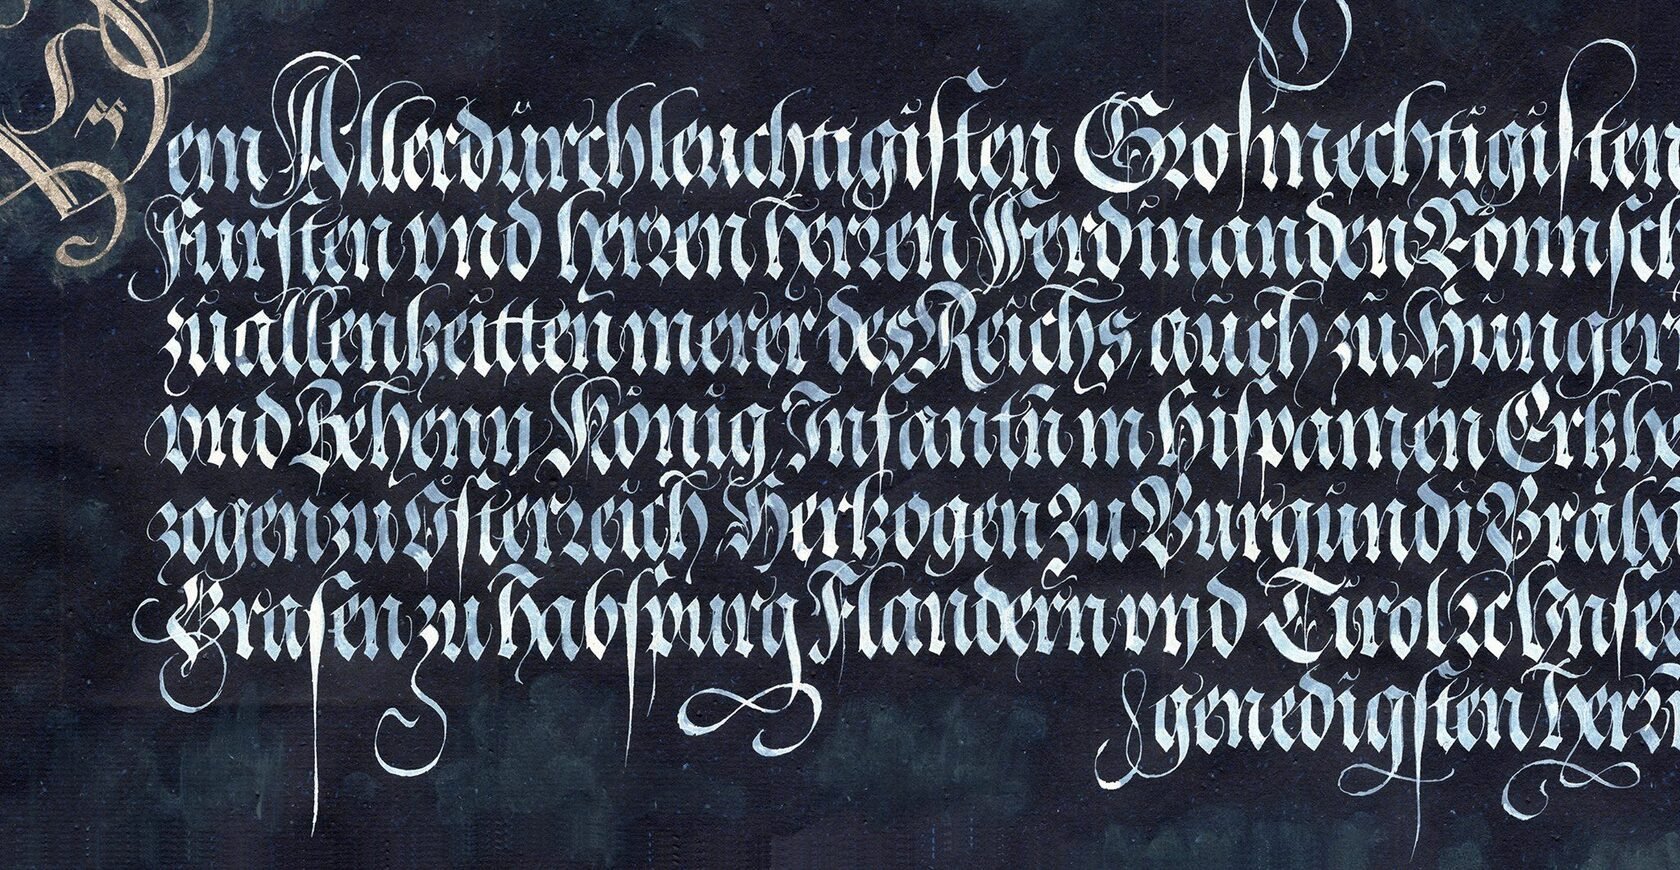 Dem Allerdürchleuchtigisten Grosmechtigisten
Fursten vnd herren herren Ferdinanden Römisch
zu allen zeitten merer des Reichs, auch zu Hungern
vnd Behenn König Infantn in Hispanien Ertzhe
zogen zu Österreich Hertzogen zu Burgundi Brab
Grafen zu habspurg Flandern vnd Tirol ꝛc Vnse
genedigsten herr